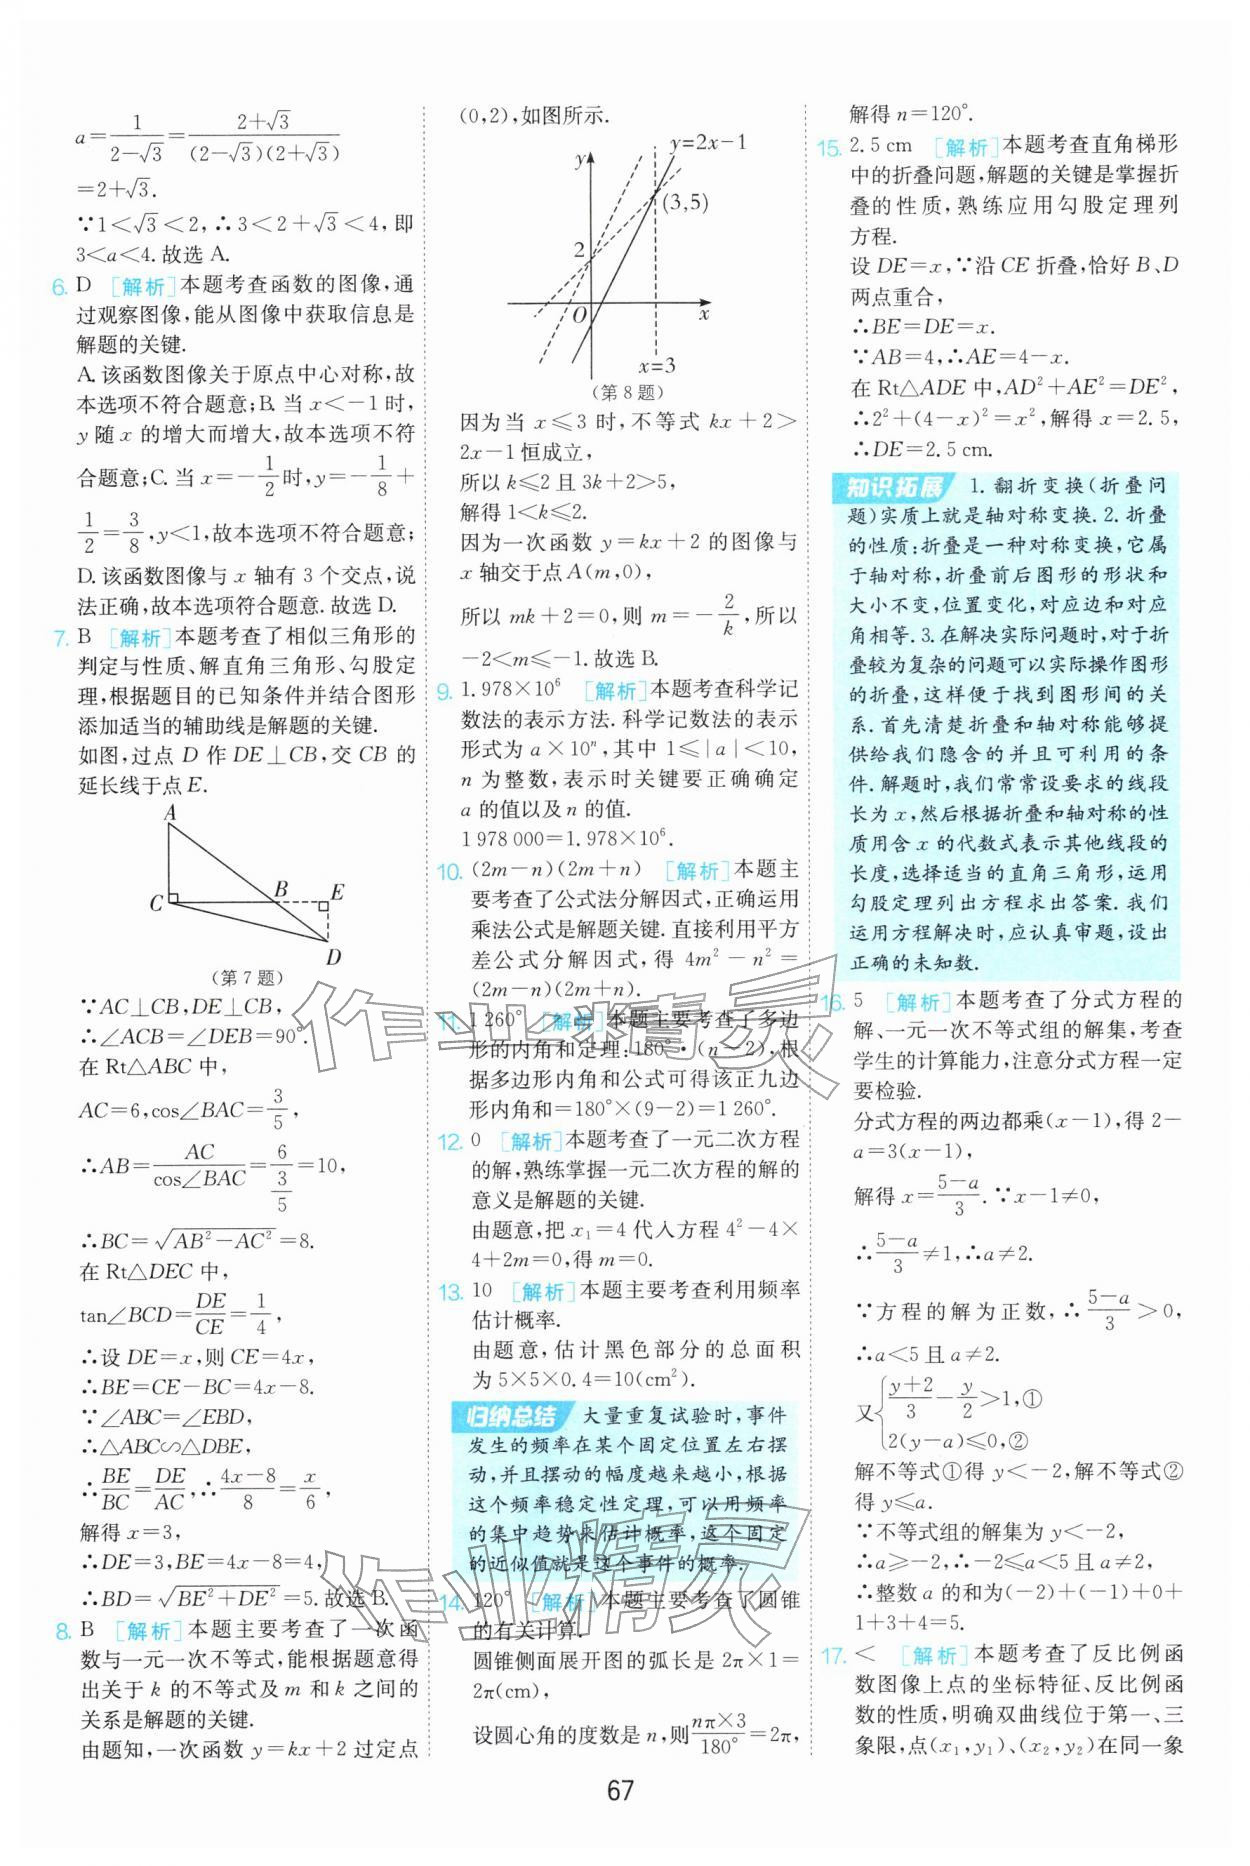 a=1/(2-√3)=(2+√3)/((2-√3)(2+√3))
=2+√3.
∵1<√3<2,∴3<2+√3<4,即
3<a<4.故选 A.
6. D [解析]本题考查函数的图像,通
过观察图像,能从图像中获取信息是
解题的关键.
A.该函数图像关于原点中心对称,故
本选项不符合题意;B.当 x<-1 时,
y 随 x 的增大而增大,故本选项不符
合题意;C.当 x=-1/2时,y=-1/8+
1/2=3/8,y<1,故本选项不符合题意;
D.该函数图像与 x 轴有 3 个交点,说
法正确,故本选项符合题意.故选 D.
7. B [解析]本题考查了相似三角形的
判定与性质、解直角三角形、勾股定
理,根据题目的已知条件并结合图形
添加适当的辅助线是解题的关键.
如图,过点 D 作 DE⊥CB,交 CB 的
延长线于点 E.
A
C
B
E
D
(第 7 题)
∵AC⊥CB,DE⊥CB,
∴∠ACB=∠DEB=90°.
在 Rt△ABC 中,
AC=6,cos∠BAC=3/5,
∴AB=AC/cos∠BAC=6/(3/5)=10,
∴BC=√(AB²-AC²)=8.
在 Rt△DEC 中,
tan∠BCD=DE/CE=1/4,
∴设 DE=x,则 CE=4x,
∴BE=CE-BC=4x-8.
∵∠ABC=∠EBD,
∴△ABC∽△DBE,
∴BE/BC=DE/AC,∴(4x-8)/8=x/6,
解得 x=3,
∴DE=3,BE=4x-8=4,
∴BD=√(BE²+DE²)=5.故选 B.
8. B [解析]本题主要考查了一次函
数与一元一次不等式,能根据题意得
出关于 k 的不等式及 m 和 k 之间的
关系是解题的关键.
由题知,一次函数 y=kx+2 过定点
(0,2),如图所示.
y
y=2x-1
(3,5)
2
O
x
x=3
(第 8 题)
因为当 x≤3 时,不等式 kx+2>
2x-1 恒成立,
所以 k≤2 且 3k+2>5,
解得 1<k≤2.
因为一次函数 y=kx+2 的图像与
x 轴交于点 A(m,0),
所以 mk+2=0,则 m=-2/k,所以
-2<m≤-1.故选 B.
9. 1.978×10⁶ [解析]本题考查科学记
数法的表示方法.科学记数法的表示
形式为 a×10ⁿ,其中 1≤|a|<10,
n 为整数,表示时关键要正确确定
a 的值以及 n 的值.
1 978 000=1.978×10⁶.
10. (2m-n)(2m+n) [解析]本题主
要考查了公式法分解因式,正确运用
乘法公式是解题关键.直接利用平方
差公式分解因式,得 4m²-n²=
(2m-n)(2m+n).
11. 1 260° [解析]本题主要考查了多边
形的内角和定理:180°·(n-2),根
据多边形内角和公式可得该正九边
形内角和=180°×(9-2)=1 260°.
12. 0 [解析]本题考查了一元二次方程
的解,熟练掌握一元二次方程的解的
意义是解题的关键.
由题意,把 x₁=4 代入方程 4²-4×
4+2m=0,得 m=0.
13. 10 [解析]本题主要考查利用频率
估计概率.
由题意,估计黑色部分的总面积
为 5×5×0.4=10(cm²).
归纳总结 大量重复试验时,事件
发生的频率在某个固定位置左右摆
动,并且摆动的幅度越来越小,根据
这个频率稳定性定理,可以用频率
的集中趋势来估计概率,这个固定
的近似值就是这个事件的概率.
14. 120° [解析]本题主要考查了圆锥
的有关计算.
圆锥侧面展开图的弧长是 2π×1=
2π(cm),
设圆心角的度数是 n,则nπ×3/180°=2π,
解得 n=120°.
15. 2.5 cm [解析]本题考查直角梯形
中的折叠问题,解题的关键是掌握折
叠的性质,熟练应用勾股定理列
方程.
设 DE=x,∵沿 CE 折叠,恰好 B、D
两点重合,
∴BE=DE=x.
∵AB=4,∴AE=4-x.
在 Rt△ADE 中,AD²+AE²=DE²,
∴2²+(4-x)²=x²,解得 x=2.5,
∴DE=2.5 cm.
知识拓展 1.翻折变换(折叠问
题)实质上就是轴对称变换.2.折叠
的性质:折叠是一种对称变换,它属
于轴对称,折叠前后图形的形状和
大小不变,位置变化,对应边和对应
角相等.3.在解决实际问题时,对于折
叠较为复杂的问题可以实际操作图形
的折叠,这样便于找到图形间的关
系.首先清楚折叠和轴对称能够提
供给我们隐含的并且可利用的条
件.解题时,我们常常设要求的线段
长为 x,然后根据折叠和轴对称的性
质用含 x 的代数式表示其他线段的
长度,选择适当的直角三角形,运用
勾股定理列出方程求出答案.我们
运用方程解决时,应认真审题,设出
正确的未知数.
16. 5 [解析]本题考查了分式方程的
解、一元一次不等式组的解集,考查
学生的计算能力,注意分式方程一定
要检验.
分式方程的两边都乘(x-1),得 2-
a=3(x-1),
解得 x=(5-a)/3.∵x-1≠0,
∴(5-a)/3≠1,∴a≠2.
∵方程的解为正数,∴(5-a)/3>0,
∴a<5 且 a≠2.
又{(y+2)/3-y/2>1,①
2(y-a)≤0,②
解不等式①得 y<-2,解不等式②
得 y≤a.
∵不等式组的解集为 y<-2,
∴a≥-2,∴-2≤a<5 且 a≠2,
∴整数 a 的和为(-2)+(-1)+0+
1+3+4=5.
17. < [解析]本题考查了反比例函
数图像上点的坐标特征、反比例函
数的性质,明确双曲线位于第一、三
象限,点(x₁,y₁)、(x₂,y₂)在同一象
67
作业精灵
作业精灵